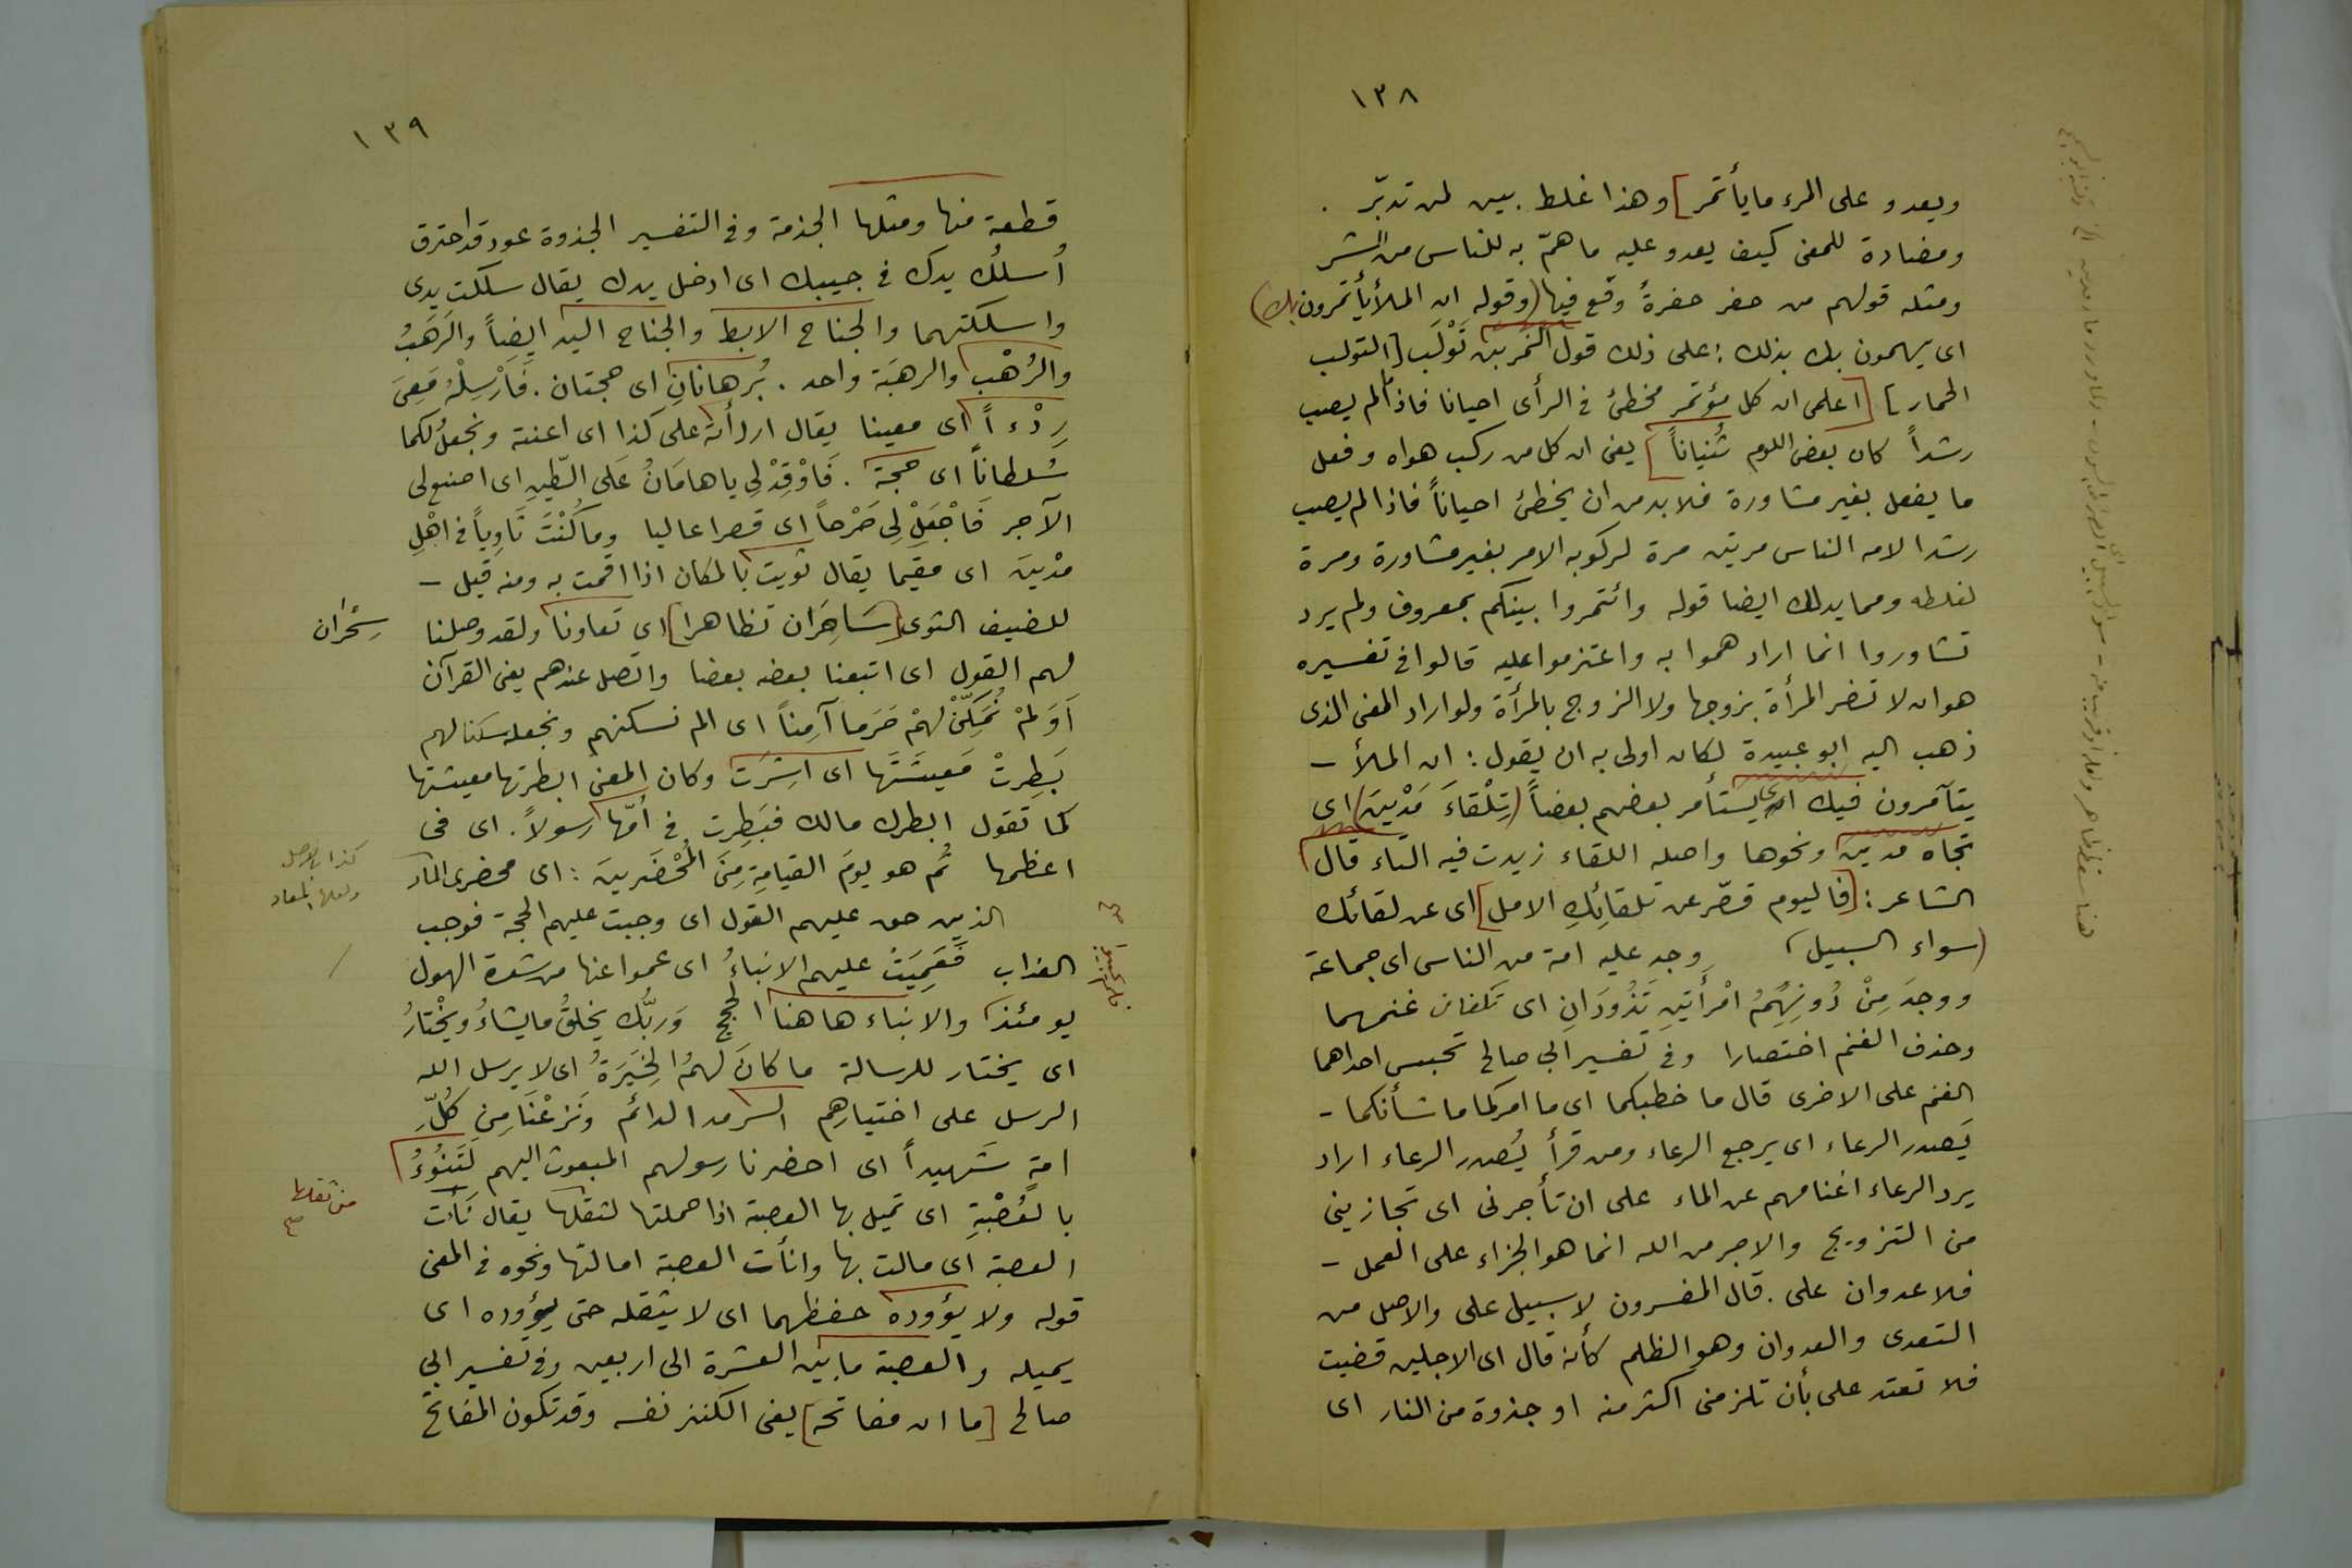 ١٣٨
ويعدو على المرء ما يأتمر] وهذا غلط بين لمن تدبّر .
ومضادة للمعنى كيف يعدو عليه ما همّ به للناس من الشر
ومثله قولهم من حفر حفرةً وقع فيها (وقوله ان الملأ يأتمرون بك)
اى يهمون بك بذلك : على ذلك قول النمر بن تَوْلَب [التولب
الحمار] [اعلمى ان كل مؤتمر مخطئ فى الرأى احيانا فاذا لم يصب
رشداً كان بعض اللوم ثُنياناً] يعنى ان كل من ركب هواه وفعل
ما يفعل بغير مشاورة فلا بد من ان يخطئ احياناً فاذا لم يصب
رشدا لامه الناس مرتين مرة لركوبه الامر بغير مشاورة ومرة
لغلطه ومما يدلك ايضا قوله وائتمروا بينكم بمعروف ولم يرد
تشاوروا انما اراد هموا به واعتزموا عليه قالوا فى تفسيره
هو ان لا تضر المرأة بزوجها ولا الزوج بالمرأة ولو اراد المعنى الذى
ذهب اليه ابو عبيدة لكان اولى به ان يقول : ان الملأ -
يتآمرون فيك اى يستأمر بعضهم بعضاً (تِلْقاءَ مَدْيَنَ) اى
تجاه مدين ونحوها واصله اللقاء زيدت فيه التاء قال
الشاعر : [فاليوم قصّر عن تلقائِكِ الامل] اى عن لقائك
(سواء السبيل) وجد عليه امة من الناس اى جماعة
ووجدَ مِنْ دُونِهِمُ امْرأَتَيْنِ تَذُودَانِ اى تكفان غنمهما
وحذف الغنم اختصارا وفى تفسير ابى صالح تحبس احداهما
الغنم على الاخرى قال ما خطبكما اى ما امركما ما شأنكما -
يَصدر الرعاء اى يرجع الرعاء ومن قرأ يُصدر الرعاء اراد
يرد الرعاء اغنامهم عن الماء على ان تأجرنى اى تجازينى
من التزويج والاجر من الله انما هو الجزاء على العمل -
فلا عدوان على . قال المفسرون لا سبيل على والاصل من
التعدى والعدوان وهو الظلم كأنه قال اى الاجلين قضيت
فلا تعتد على بأن تلزمنى اكثر منه او جذوة من النار اى
١٣٩
قطعة منها ومثلها الجذمة وفى التفسير الجذوة عود قد احترق
أُسلُك يدك فى جيبك اى ادخل يدك يقال سلكت يدى
واسلكتهما والجناح الابط والجناح اليد ايضاً والرَهَبُ
والرُهْب والرهبَة واحد . بُرهانانِ اى حجتان . فَاَرْسِلْهُ مَعِىَ
رِدْءاً اى معينا يقال اردأته على كذا اى اعنته ونجعلُ لكما
سُلطاناً اى حجة . فَاَوْقِدْ لِى يا هامَانُ عَلَى الطّينِ اى اصنع لى
الآجر فَاجْعَلْ لِى صَرْحاً اى قصرا عاليا وما كُنْتَ ثَاوِياً فى اهْلِ
مدْيَنَ اى مقيما يقال ثويت بالمكان اذا اقمت به ومنه قيل -
للضيف الثوى [سَاحِرَان تظاهرا] اى تعاونا ولقد وصلنا
سِحْران
لهم القول اى اتبعنا بعضه بعضا واتصل عندهم يعنى القرآن
اَوَلمْ نُمَكِّنْ لهمْ حَرَما آمِناً اى الم نسكنهم ونجعله سكنا لهم
بَطِرتْ مَعيشَتَها اى اشِرَت وكان المعنى ابطرتها معيشتها
كما تقول ابطرك مالك فبَطِرت فى اُمّها رسولاً . اى فى
اعظمها ثُم هو يومَ القيامةِ مِنَ المُحْضَرينَ : اى محضرى النار
كذا بالاصل
الذين حق عليهم القول اى وجبت عليهم الحجة فوجب
العذاب فَعَمِيَتْ عليهم الانباءُ اى عموا عنها من شدة الهول
يومئذ والانباء هاهنا الحجج وَربُّك يخلقُ ما يشاءُ ويخْتارُ
اى يختار للرسالة ما كانَ لَهمُ الخِيَرَةُ اى لا يرسل الله
الرسل على اختيارهم السرمد الدائم وَنَزعْنَا مِن كُلّ
امةٍ شَهيداً اى احضرنا رسولهم المبعوث اليهم لَتَنُوءُ
بالعُصْبَةِ اى تميل بها العصبة اذا حملتها لثقلها يقال نَأَت
من ثقلها
العصبة اى مالت بها وانأت العصبة امالتها ونحوه فى المعنى
قوله ولا يؤوده حفظهما اى لا يثقله حتى يؤوده اى
يميله والعصبة ما بين العشرة الى اربعين وفى تفسير ابى
صالح [ما ان مفاتحه] يعنى الكنز نفسه وقد تكون المفاتح